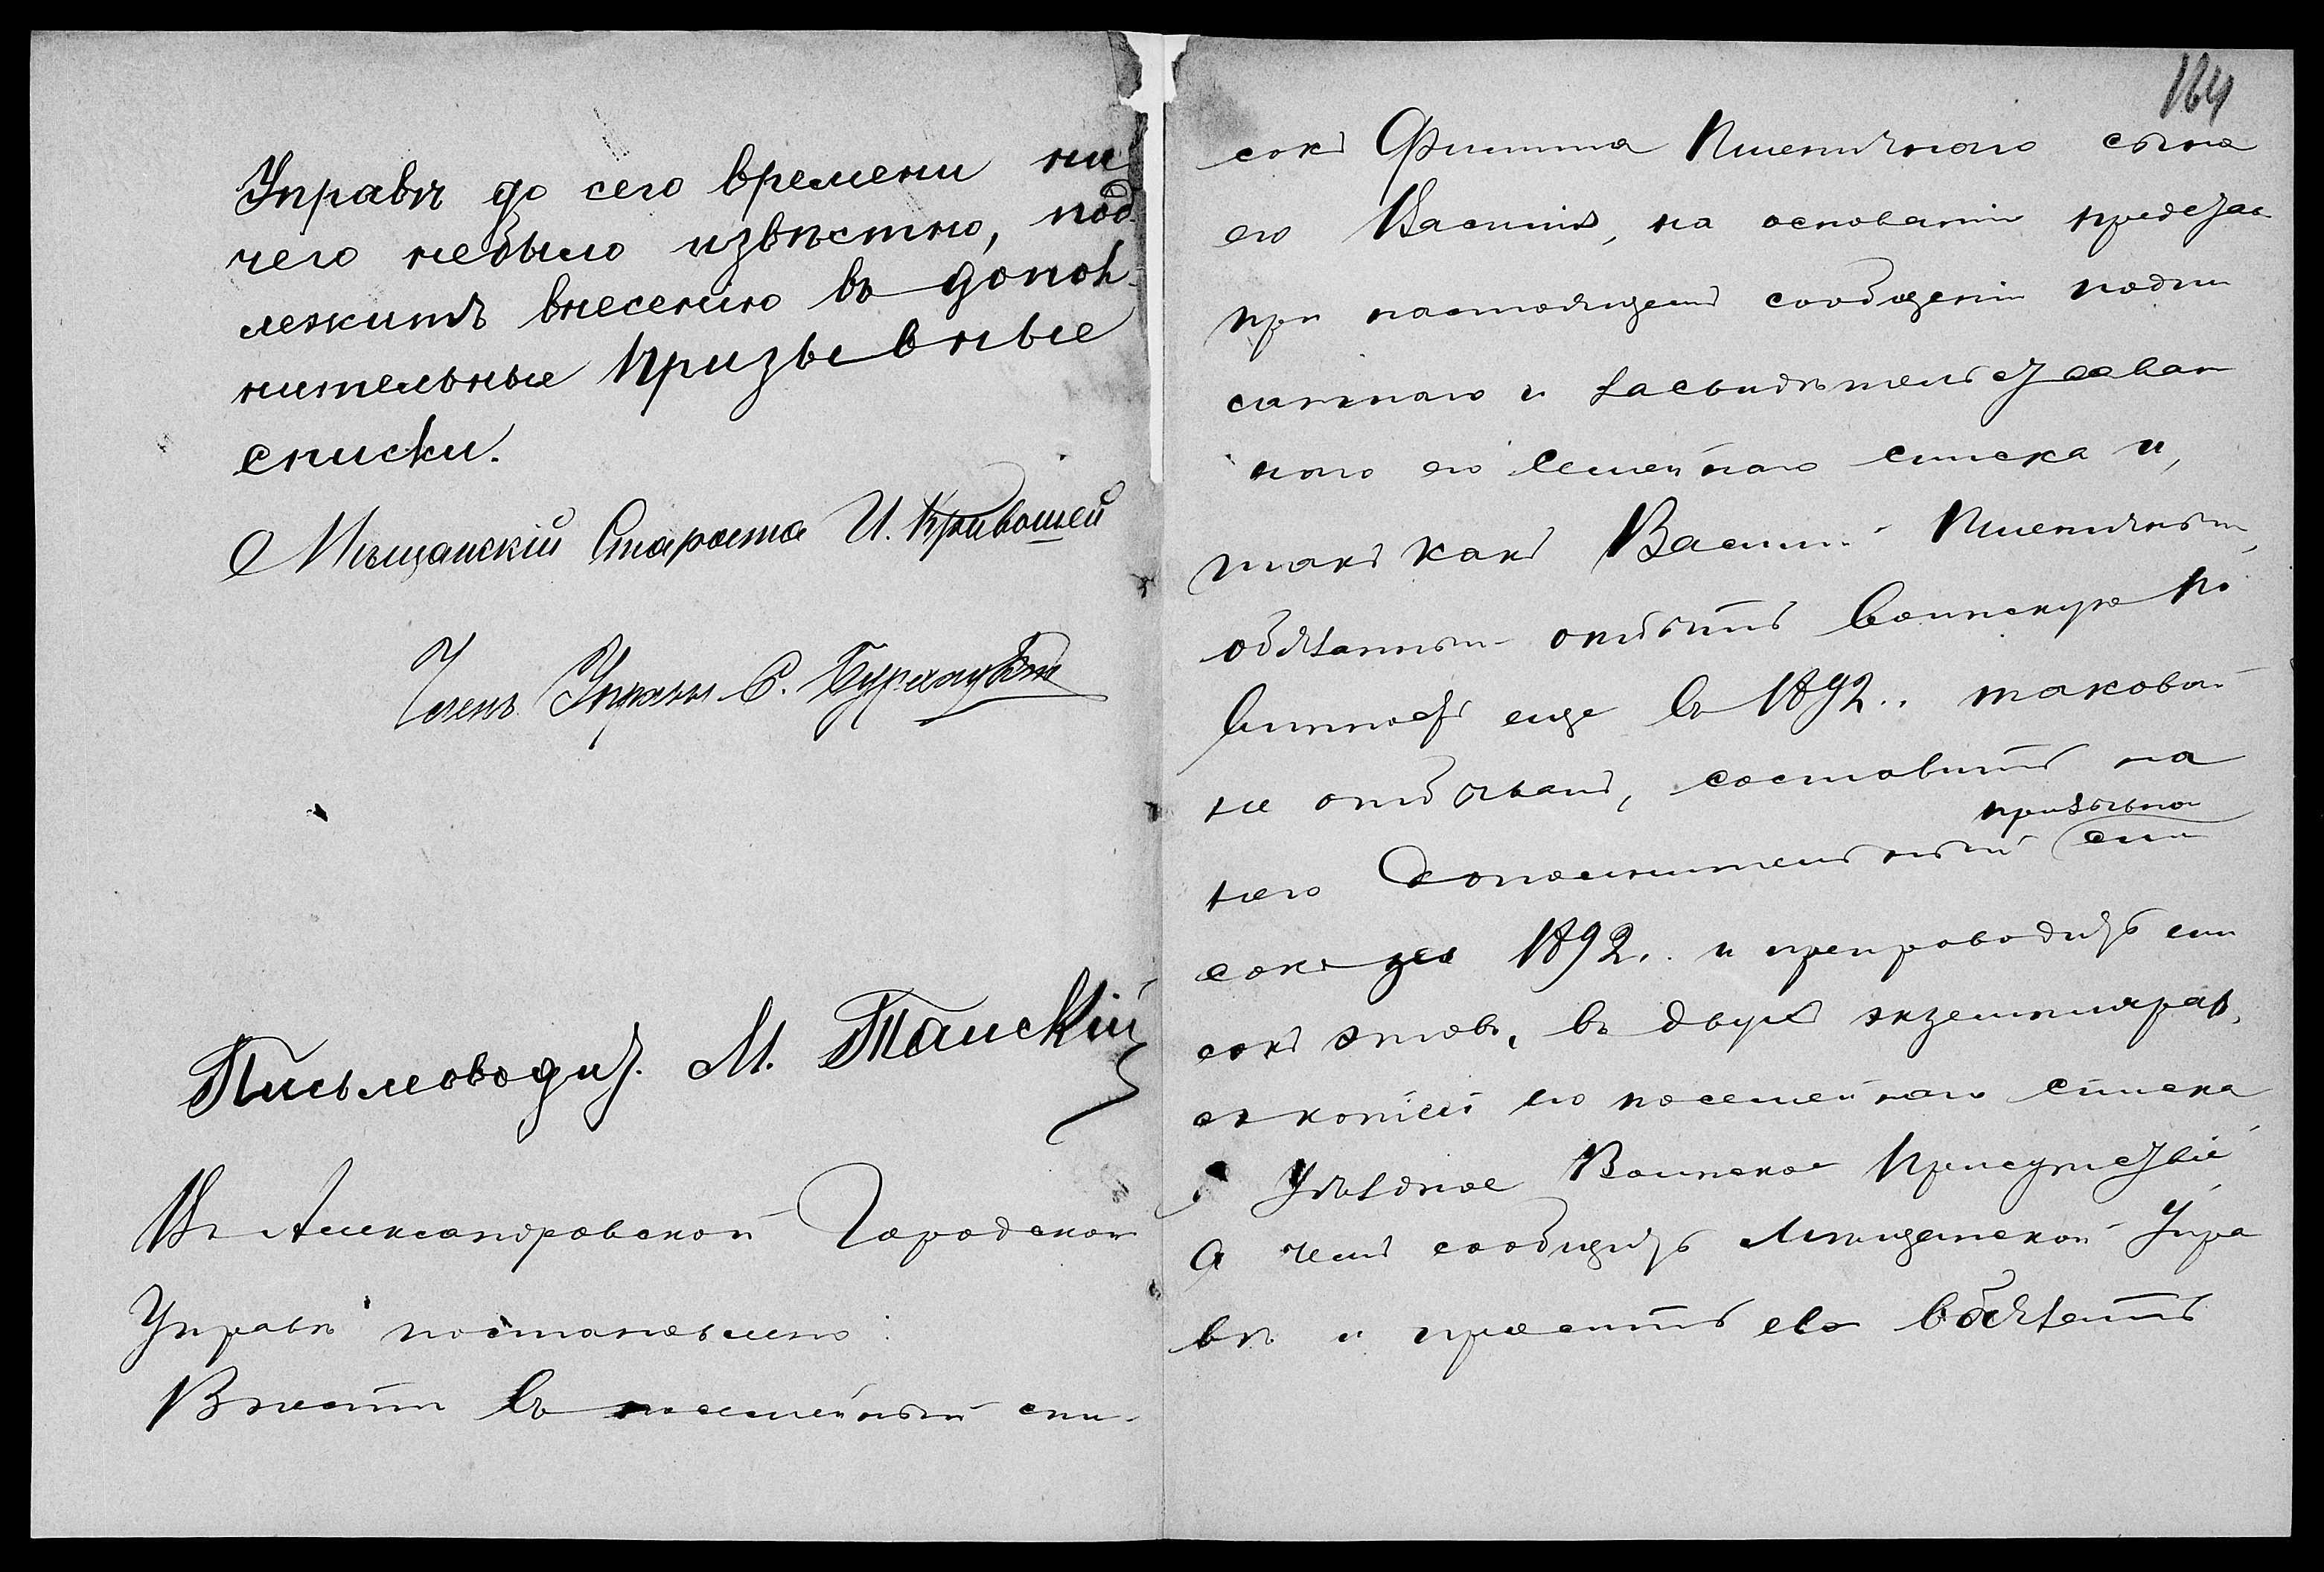 Управѣ до сего времени ни
чего небыло извѣстно, под
лежитъ внесенію въ допол-
нительные призывные
списки.
Мѣщанскій Староста И. Кривошей
Членъ Управы С.
Письмоводит. М. Танскій
Въ Александровской Городской
Управѣ постановлено:
Внести въ посемейный спи-
164
сокъ Филиппа Пшеничного сына
его Василія, на основаніи предстов
при настоящемъ сообщеніи подпи
саннаго и засвидѣтельствован
ного его семейного списка и,
такъ какъ Василій Пшеничный,
обязанный отбыть воинскую по
винность еще въ 1892 г. таковой
не отбывалъ, составить на
него дополнительный призывной спи
сокъ за 1892 г. и препроводить спи
сокъ этотъ, въ двухъ экземплярахъ,
съ копіей его посемейного списка
въ Уѣздное Воинское Присутствіе,
о чемъ сообщить Мѣщанской Упра
вѣ и просить ево обязать